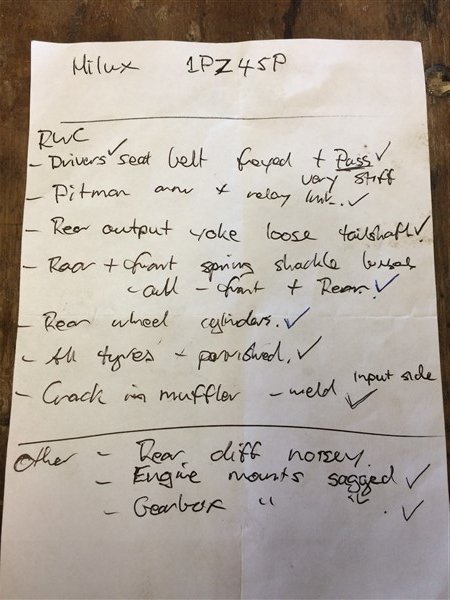 Milux 1PZ45P
RWC
- Drivers ✓ seat belt frayed + Pass ✓
very stiff
- Pitman arm + relay link. ✓
- Rear output yoke loose tailshaft ✓
- Rear + front spring shackle
all - front + Rear. ✓
- Rear wheel cylinders. ✓
- All tyres + perished. ✓
input side
- Crack in muffler - weld ✓
Other - Rear diff noisey.
- Engine mounts sagged ✓
- Gearbox " " ✓